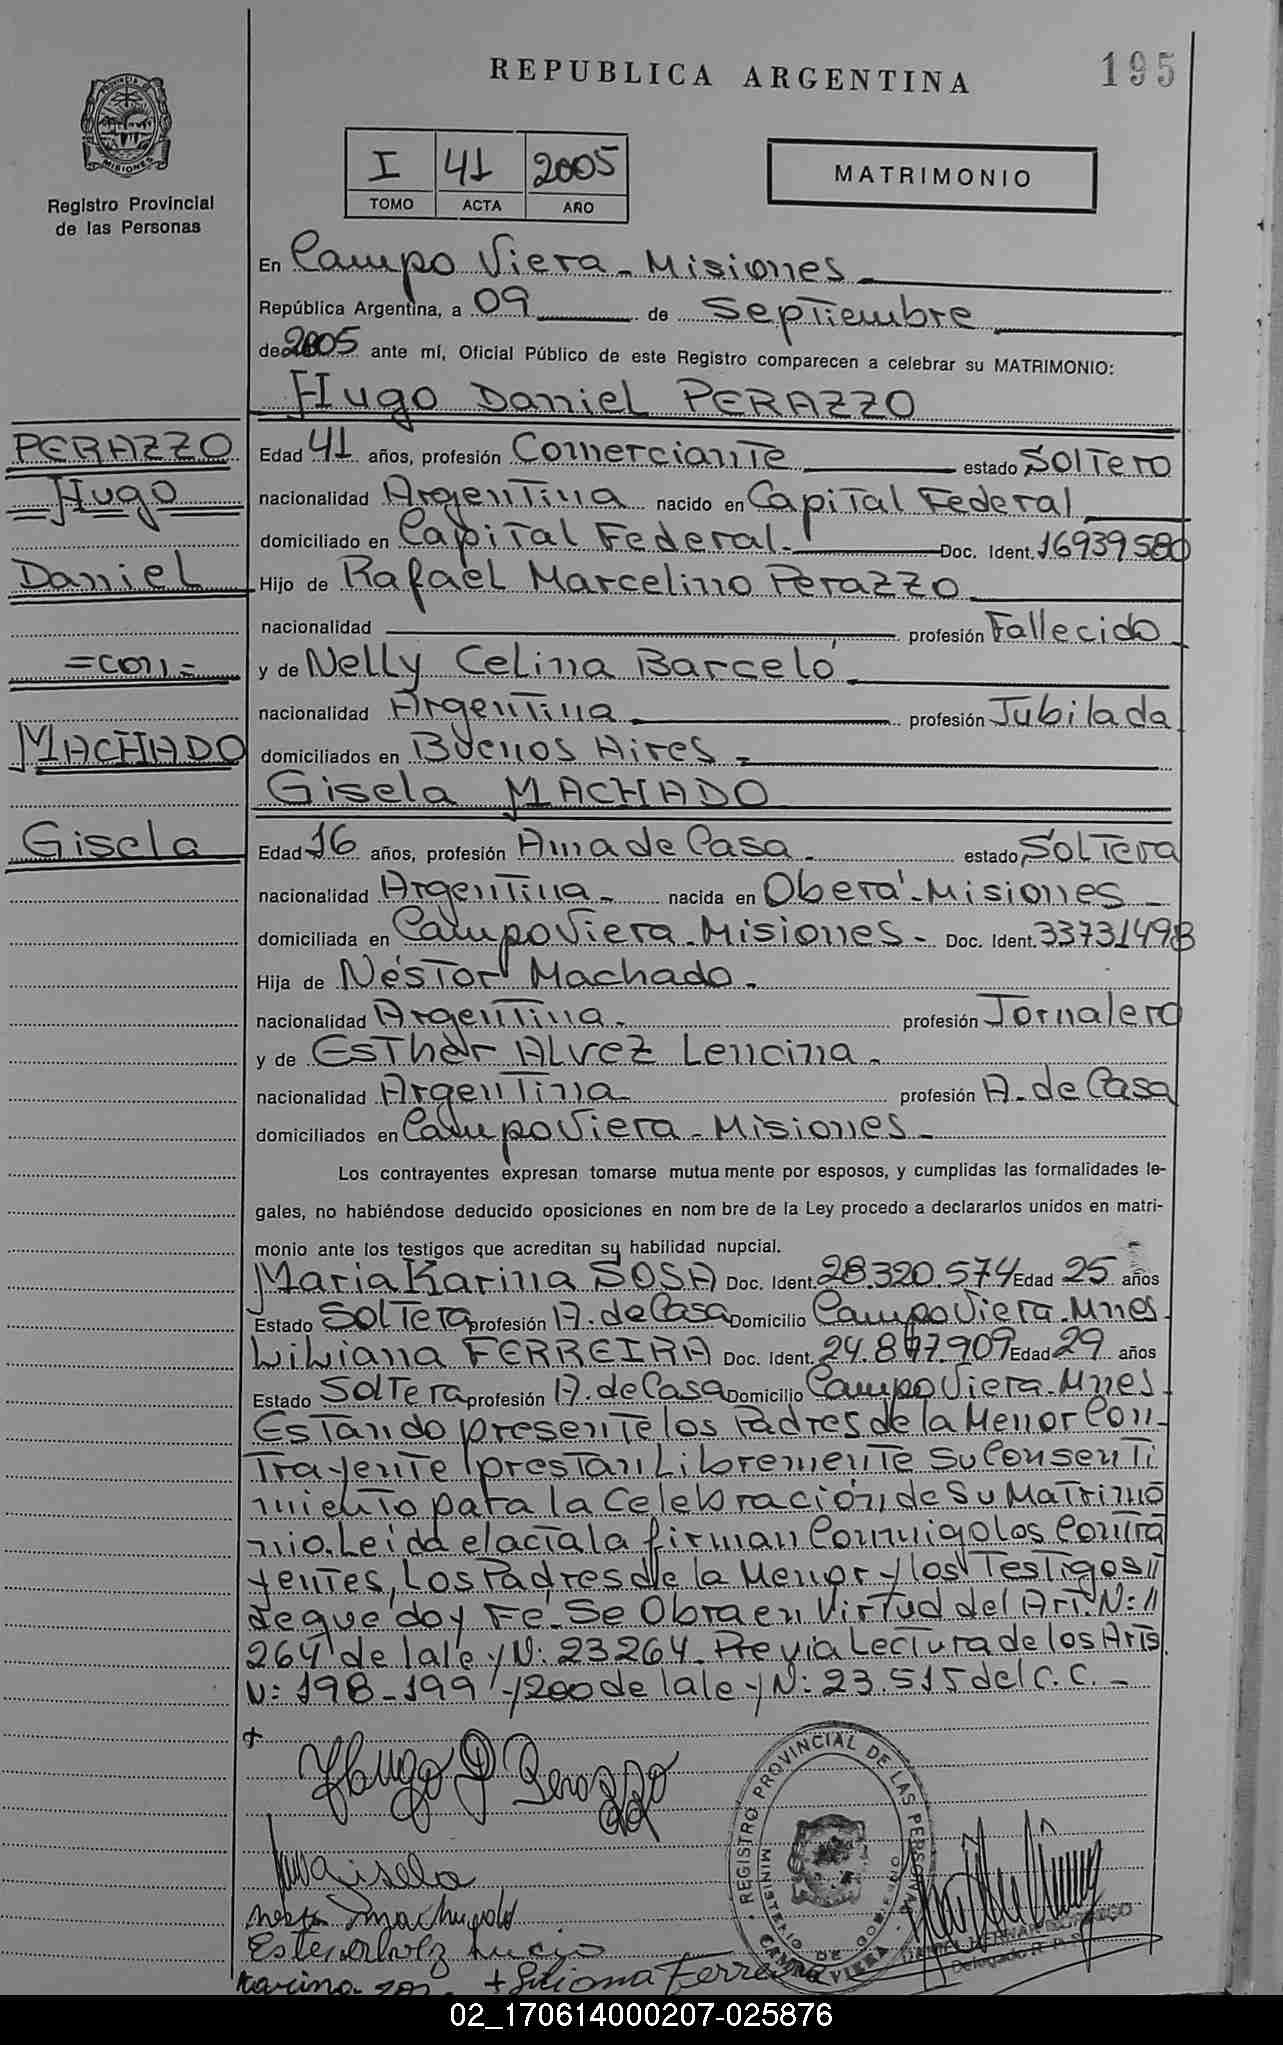 REPUBLICA ARGENTINA
195
MISIONES
Registro Provincial
de las Personas
I 41 2005
TOMO ACTA AÑO
MATRIMONIO
En Campo Viera - Misiones
República Argentina, a 09 de Septiembre
de 2005 ante mí, Oficial Público de este Registro comparecen a celebrar su MATRIMONIO:
Hugo Daniel PERAZZO
PERAZZO
Hugo
Daniel
=con=
MACHADO
Gisela
Edad 41 años, profesión Comerciante estado Soltero
nacionalidad Argentina nacido en Capital Federal
domiciliado en Capital Federal.- Doc. Ident. 16939580
Hijo de Rafael Marcelino Perazzo
nacionalidad profesión Fallecido
y de Nelly Celina Barceló
nacionalidad Argentina profesión Jubilada
domiciliados en Buenos Aires -
Gisela MACHADO
Edad 16 años, profesión Ama de Casa. estado Soltera
nacionalidad Argentina - nacida en Oberá - Misiones -
domiciliada en Campo Viera - Misiones - Doc. Ident. 33731498
Hija de Néstor Machado -
nacionalidad Argentina - profesión Jornalero
y de Esther Alvez Lencina -
nacionalidad Argentina profesión A. de Casa
domiciliados en Campo Viera - Misiones -
Los contrayentes expresan tomarse mutua mente por esposos, y cumplidas las formalidades le-
gales, no habiéndose deducido oposiciones en nom bre de la Ley procedo a declararlos unidos en matri-
monio ante los testigos que acreditan su habilidad nupcial.
Maria Karina SOSA Doc. Ident. 28.320.574 Edad 25 años
Estado Soltera profesión A. de Casa Domicilio Campo Viera. Mnes
Liliana FERREIRA Doc. Ident. Edad 29 años
Estado Soltera profesión A. de Casa Domicilio Campo Viera. Mnes.
Estando presente los Padres de la Menor Con-
trayente prestan Libremente su Consenti
miento para la Celebración de su Matrimo
nio. Leida el acta la firman Conmigo los Contra
yentes, Los Padres de la Menor y los Testigos //
de que doy Fé. Se Obra en Virtud del Art. N: //
264 de la ley N: 23264. Previa Lectura de los Arts
N: 198-199 y 200 de la ley N: 23.515 del C.C. -
Hugo D Perazzo
Gisela
REGISTRO PROVINCIAL DE LAS PERSONAS
MINISTERIO DE GOBIERNO
CAMPO VIERA
Liliana Ferreira
02_170614000207-025876